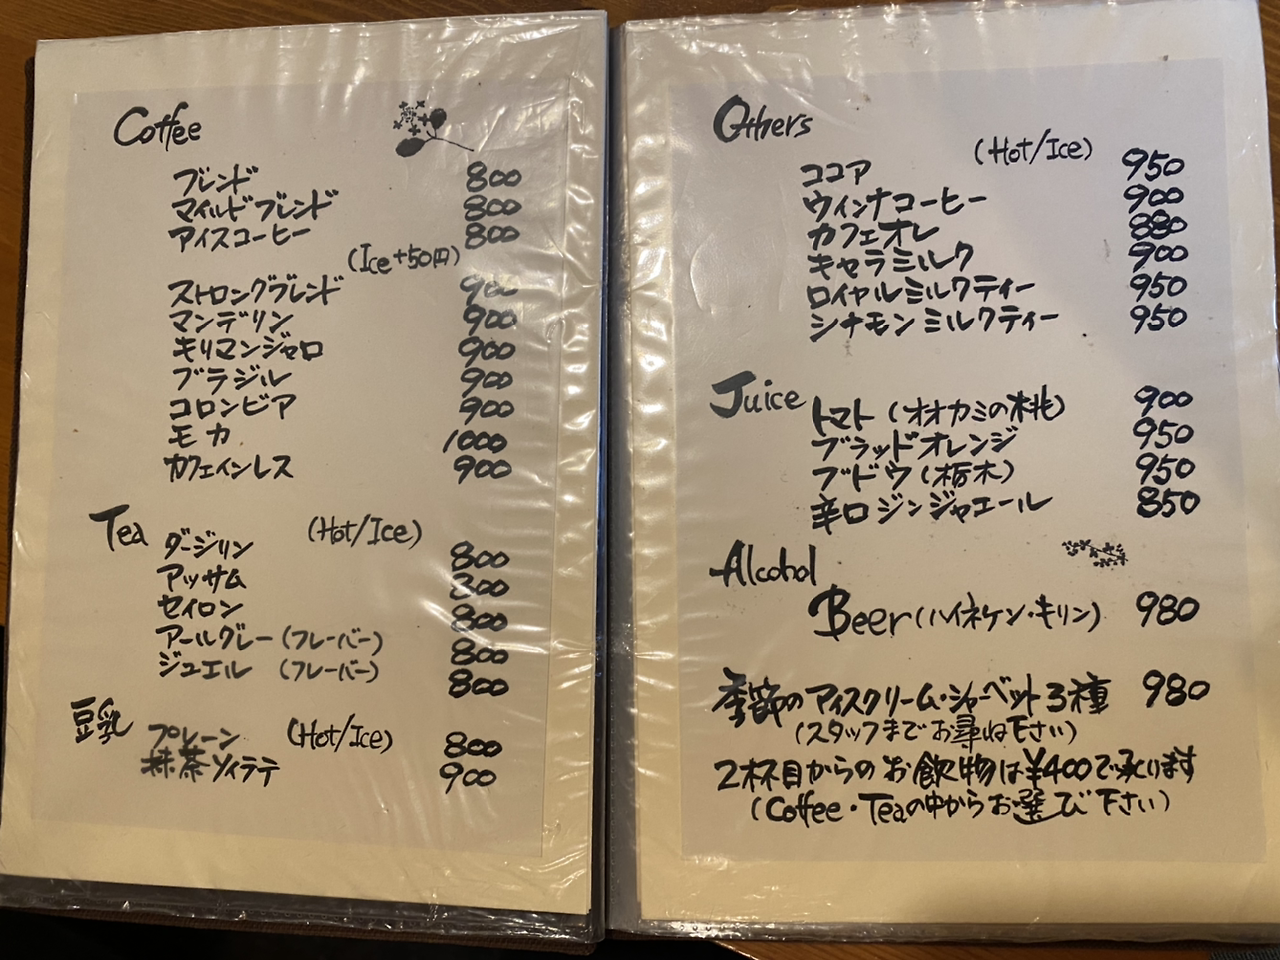 Coffee
ブレンド 800
マイルドブレンド 800
アイスコーヒー 800
(Ice+50円)
ストロングブレンド 900
マンデリン 900
キリマンジャロ 900
ブラジル 900
コロンビア 900
モカ 1000
カフェインレス 900
Tea (Hot/Ice)
ダージリン 800
アッサム 800
セイロン 800
アールグレー(フレーバー) 800
ジュエル (フレーバー) 800
豆乳 (Hot/Ice)
プレーン 800
抹茶ソイラテ 900
Others (Hot/Ice)
ココア 950
ウィンナコーヒー 900
カフェオレ 880
キャラミルク 900
ロイヤルミルクティー 950
シナモンミルクティー 950
Juice
トマト(オオカミの桃) 900
ブラッドオレンジ 950
ブドウ(栃木) 950
辛口ジンジャエール 850
Alcohol
Beer(ハイネケン・キリン) 980
季節のアイスクリーム・シャーベット3種 980
(スタッフまでお尋ね下さい)
2杯目からのお飲物は¥400で承ります
(Coffee・Teaの中からお選び下さい)